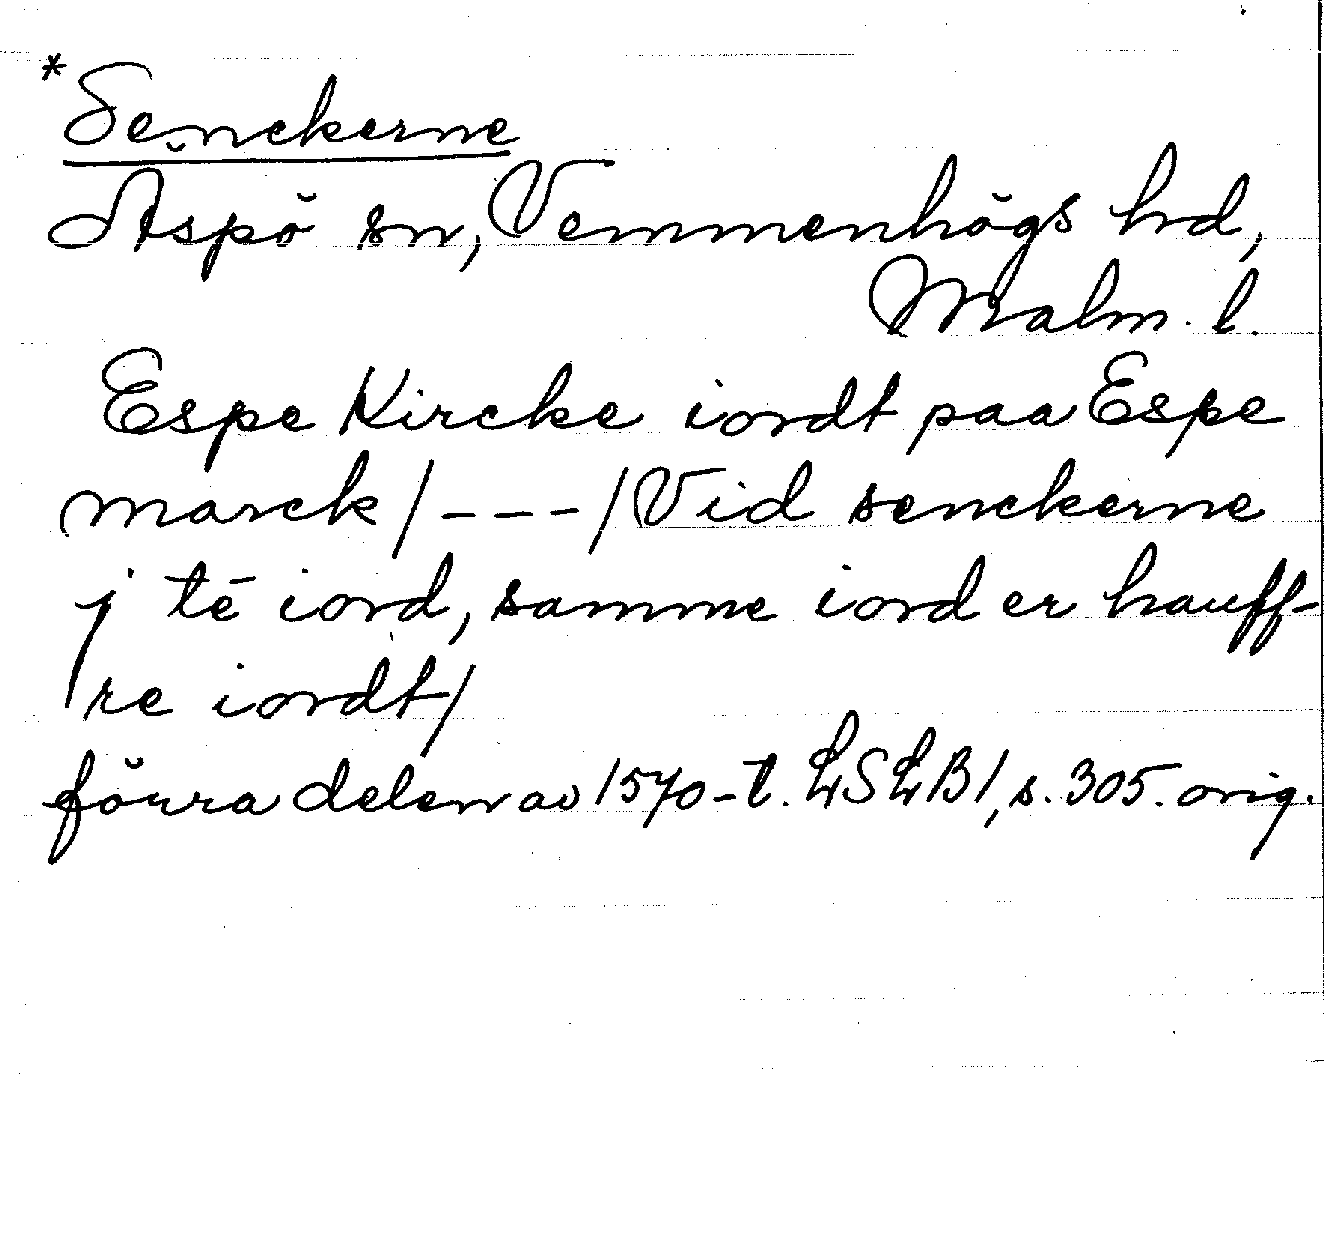 *Senckerne
Aspö sn, Vemmenhögs hd,
Malm. l.
Espe Kircke iordt paa Espe
marck /---/ Vid senckerne
j tē iord, samme iord er hauff-
re iordt/
förra delen av 1570-t. LSLB1, s. 305. orig.